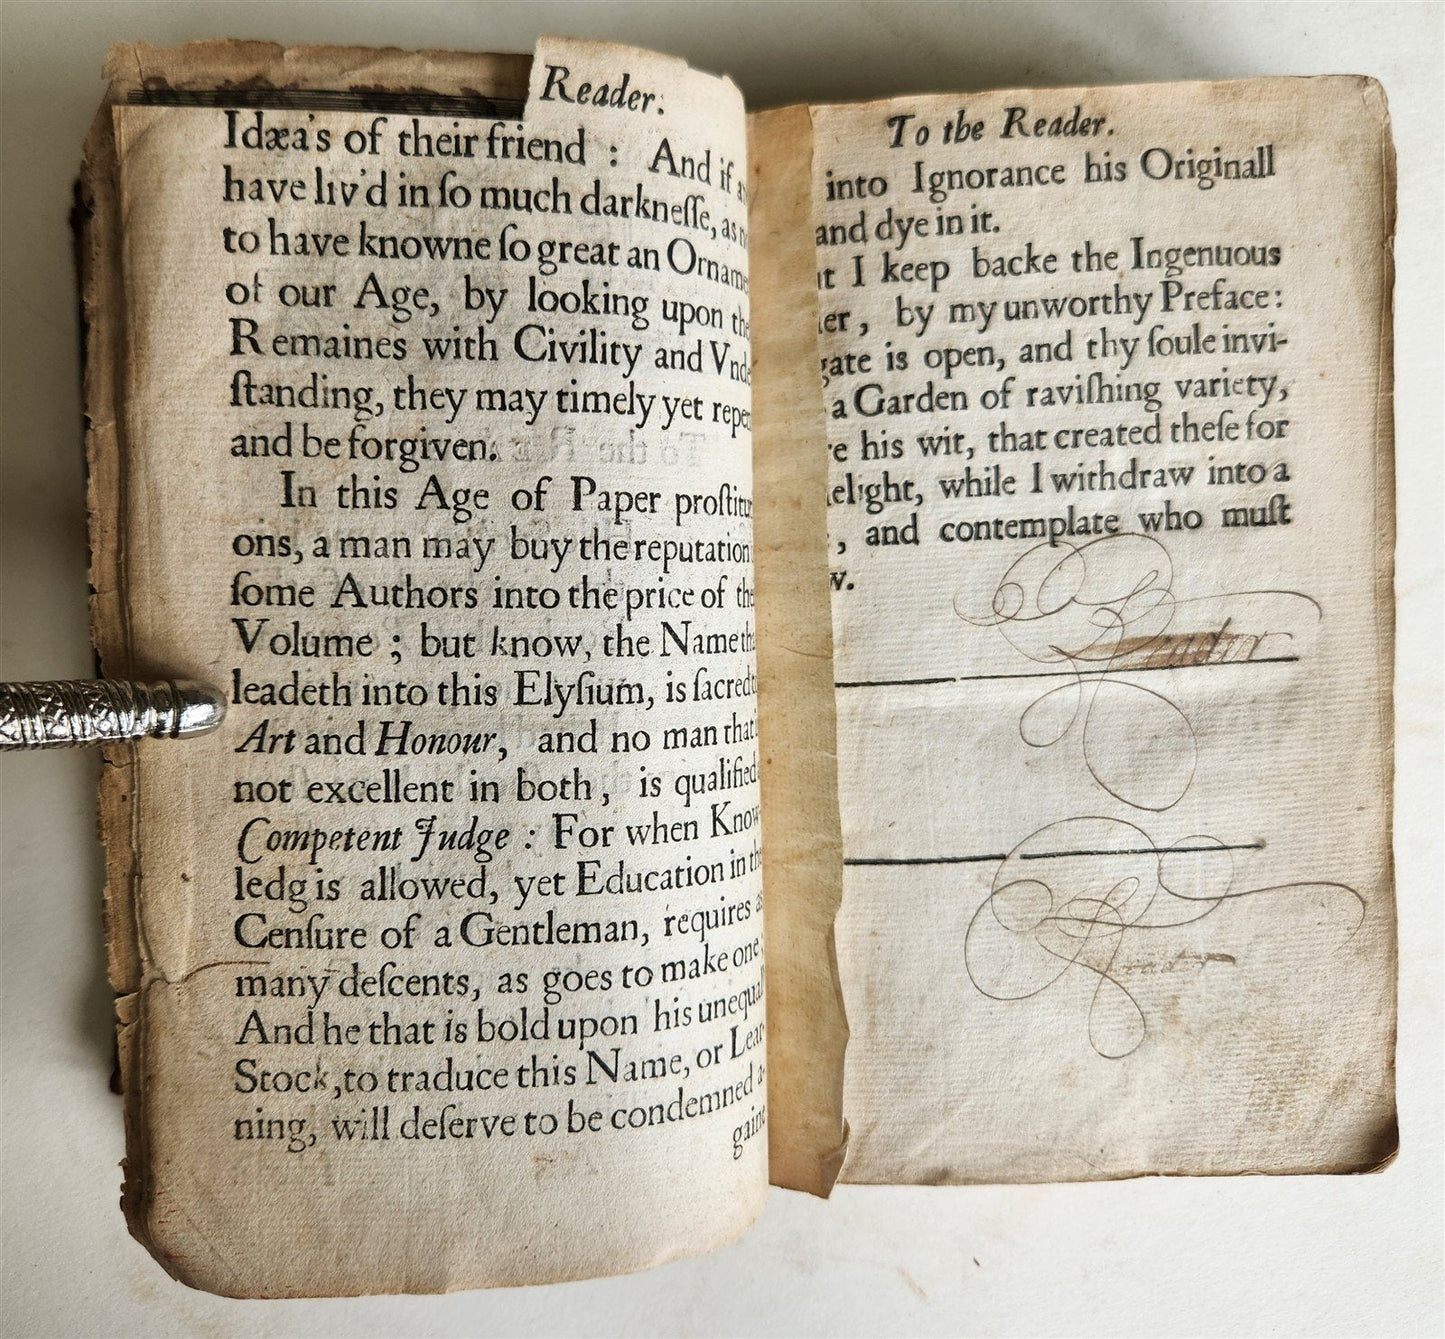 Reader.
Idæa's of their friend : And if
have liv'd in ſo much darkneſſe, as
to have knowne ſo great an Orname
of our Age, by looking upon the
Remaines with Civility and Vnde
ſtanding, they may timely yet repen
and be forgiven.
In this Age of Paper proſtitut
ons, a man may buy the reputation
ſome Authors into the price of the
Volume ; but know, the Name tha
leadeth into this Elyſium, is ſacred t
Art and Honour, and no man that i
not excellent in both, is qualified
Competent Judge : For when Know-
ledg is allowed, yet Education in the
Cenſure of a Gentleman, requires as
many deſcents, as goes to make one
And he that is bold upon his unequall
Stock, to traduce this Name, or Lear-
ning, will deſerve to be condemned a-
gaine
To the Reader.
into Ignorance his Originall
and dye in it.
t I keep backe the Ingenuous
er, by my unworthy Preface:
gate is open, and thy ſoule invi-
a Garden of raviſhing variety,
e his wit, that created theſe for
elight, while I withdraw into a
, and contemplate who muſt
w.